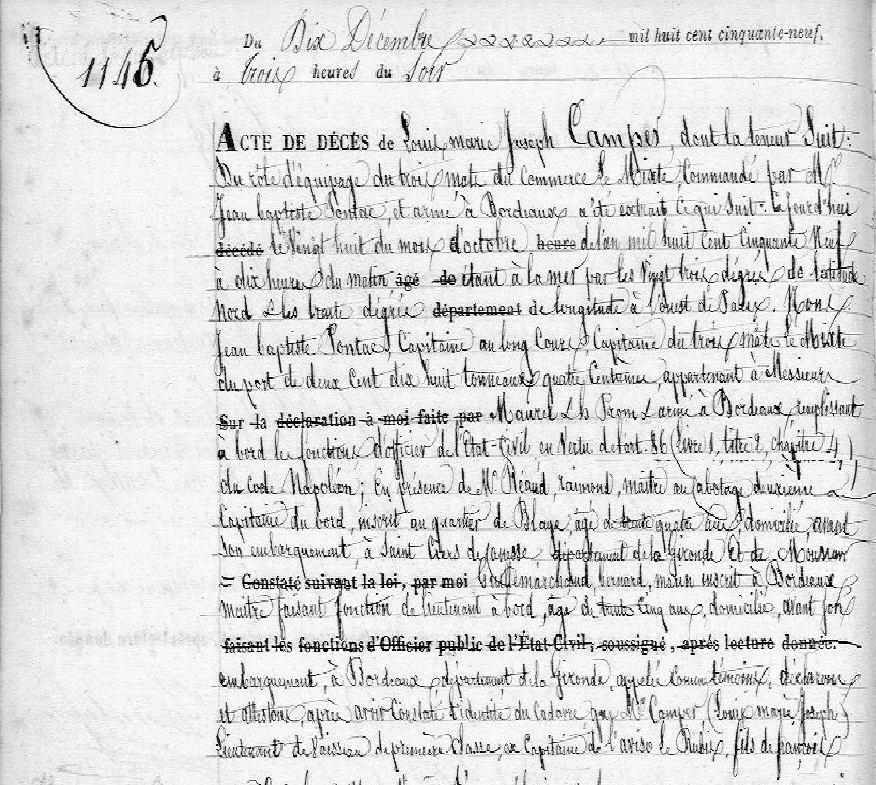 1146.
Du Dix Décembre mil huit cent cinquante-neuf,
à trois heures du Soir
ACTE DE DÉCÈS de Louis marie Joseph Camper, dont la teneur Suit:
Du rôle d'équipage du trois mâts du Commerce le Mixte, Commandé par Mr.
Jean baptiste Pontac, et armé à Bordeaux a été extrait ce qui suit: Ce jourd'hui
décédé le Vingt huit du mois d'octobre heure de l'an mil huit Cent Cinquante Neuf
à dix heures du matin âgé de étant à la mer par les Vingt trois degrés de latitude
Nord & les trente degrés département de longitude à l'ouest de Paris. Nous
Jean baptiste Pontac, Capitaine au long Cours, Capitaine du trois mâts le Mixte
du port de deux Cent dix huit tonneaux quatre Centièmes appartenant à Messieurs
Sur la déclaration à moi faite par Maurel & h Prom & armé à Bordeaux, remplissant
à bord les fonctions d'officier de l'État-Civil en Vertu de l'art. 86 (livre 1, titre 2, chapitre 4)
du Code Napoléon; En présence de Mr. Réaud, raimond, maître au Cabotage deuxième
Capitaine du bord, inscrit au quartier de Blaye, âgé de trente quatre ans, domicilié, avant
son embarquement, à Saint Ciers de département de la Gironde Et de Monsieur
= Constaté suivant la loi, par moi bernard, marin inscrit à Bordeaux
maître faisant fonction de lieutenant à bord, âgé de trente Cinq ans, domicilié, avant son
faisant les fonctions d'Officier public de l'État Civil, soussigné, après lecture donnée.
embarquement, à Bordeaux département de la Gironde, appelés Comme témoins, déclarons
et attestons, après avoir Constaté l'identité du Cadavre que Mr. Camper (Louis marie Joseph)
Lieutenant de Vaisseau de première Classe, ex Capitaine de l'aviso le Rubis, fils de françois